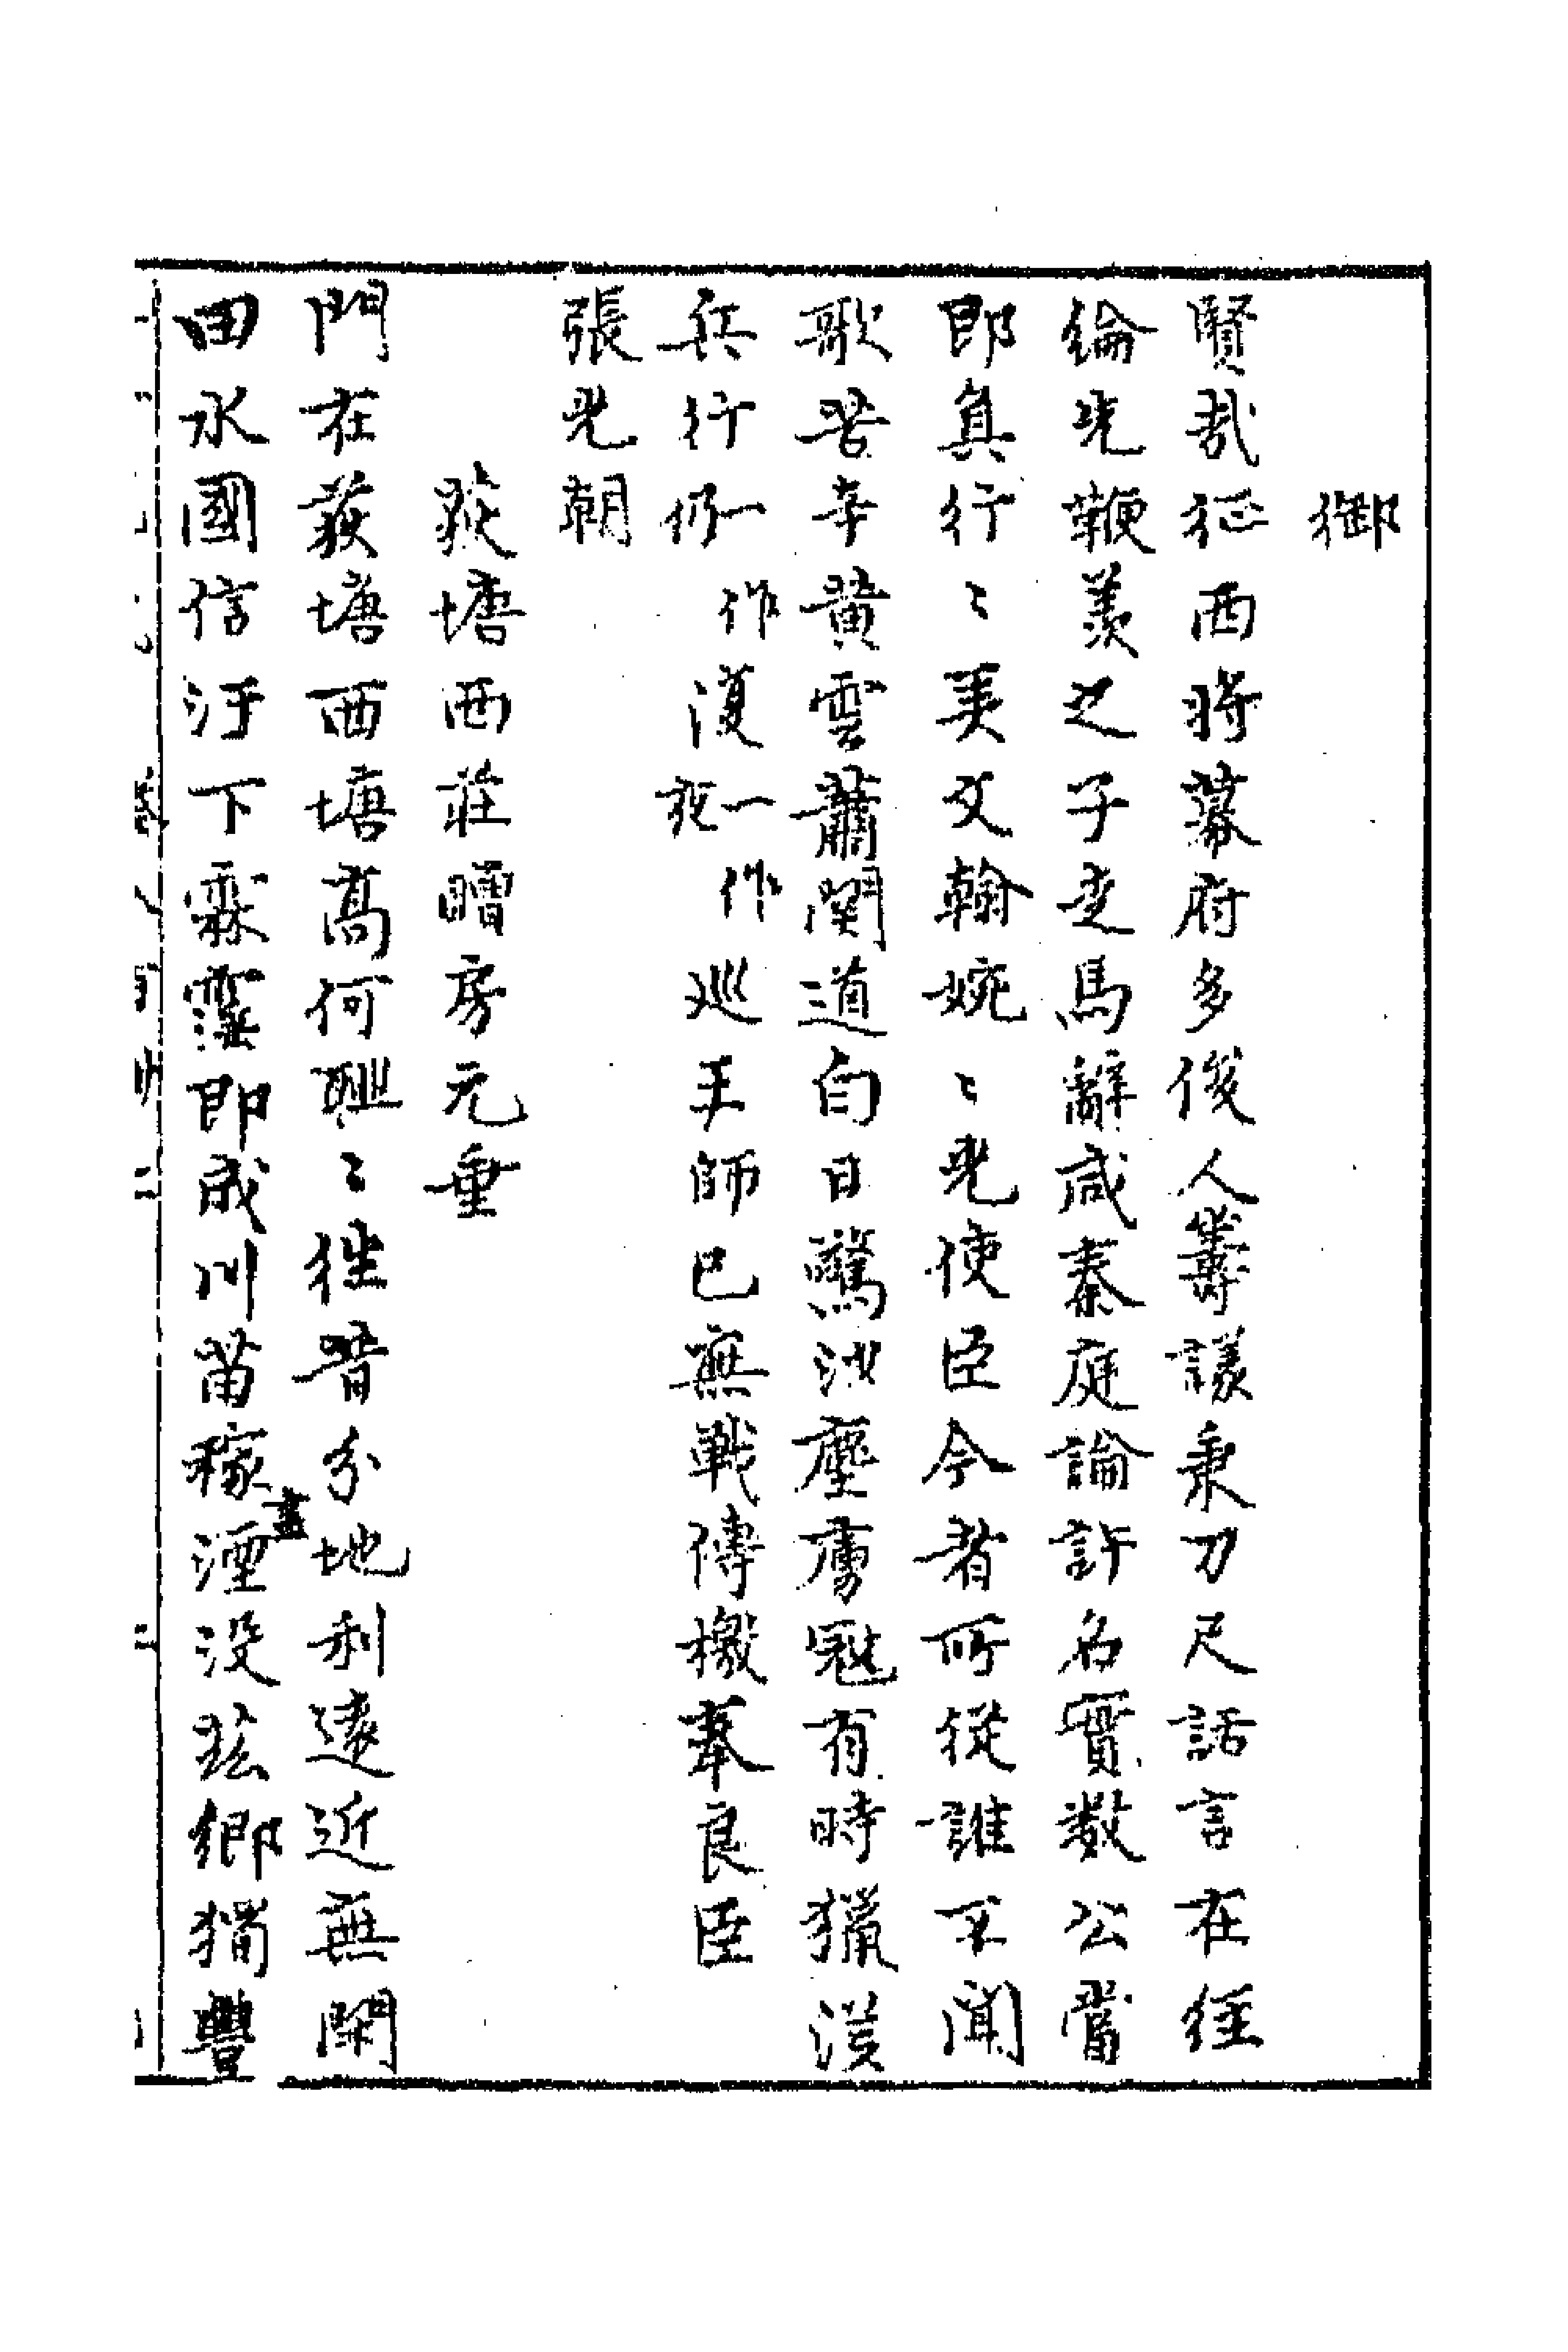 御
賢哉征西將幕府多俊人籌議秉刀尺話言在經
倫先鞭羨之子走馬辭咸秦庭論許名實数公當
即真行〻美文翰婉〻光使臣今者所從誰不聞
歌苦辛黄雲蕭関道白日驚沙塵虜冦有時獵漢
兵行仍一作復夜一作巡王師已無戰傳檄奉良臣
張光朝
荻塘西莊贈房元垂
門在荻塘西塘髙何聨〻往昔分地利遠近無閑
田水國信汙下霖霪即成川苗稼湮没盡兹鄉獨豐